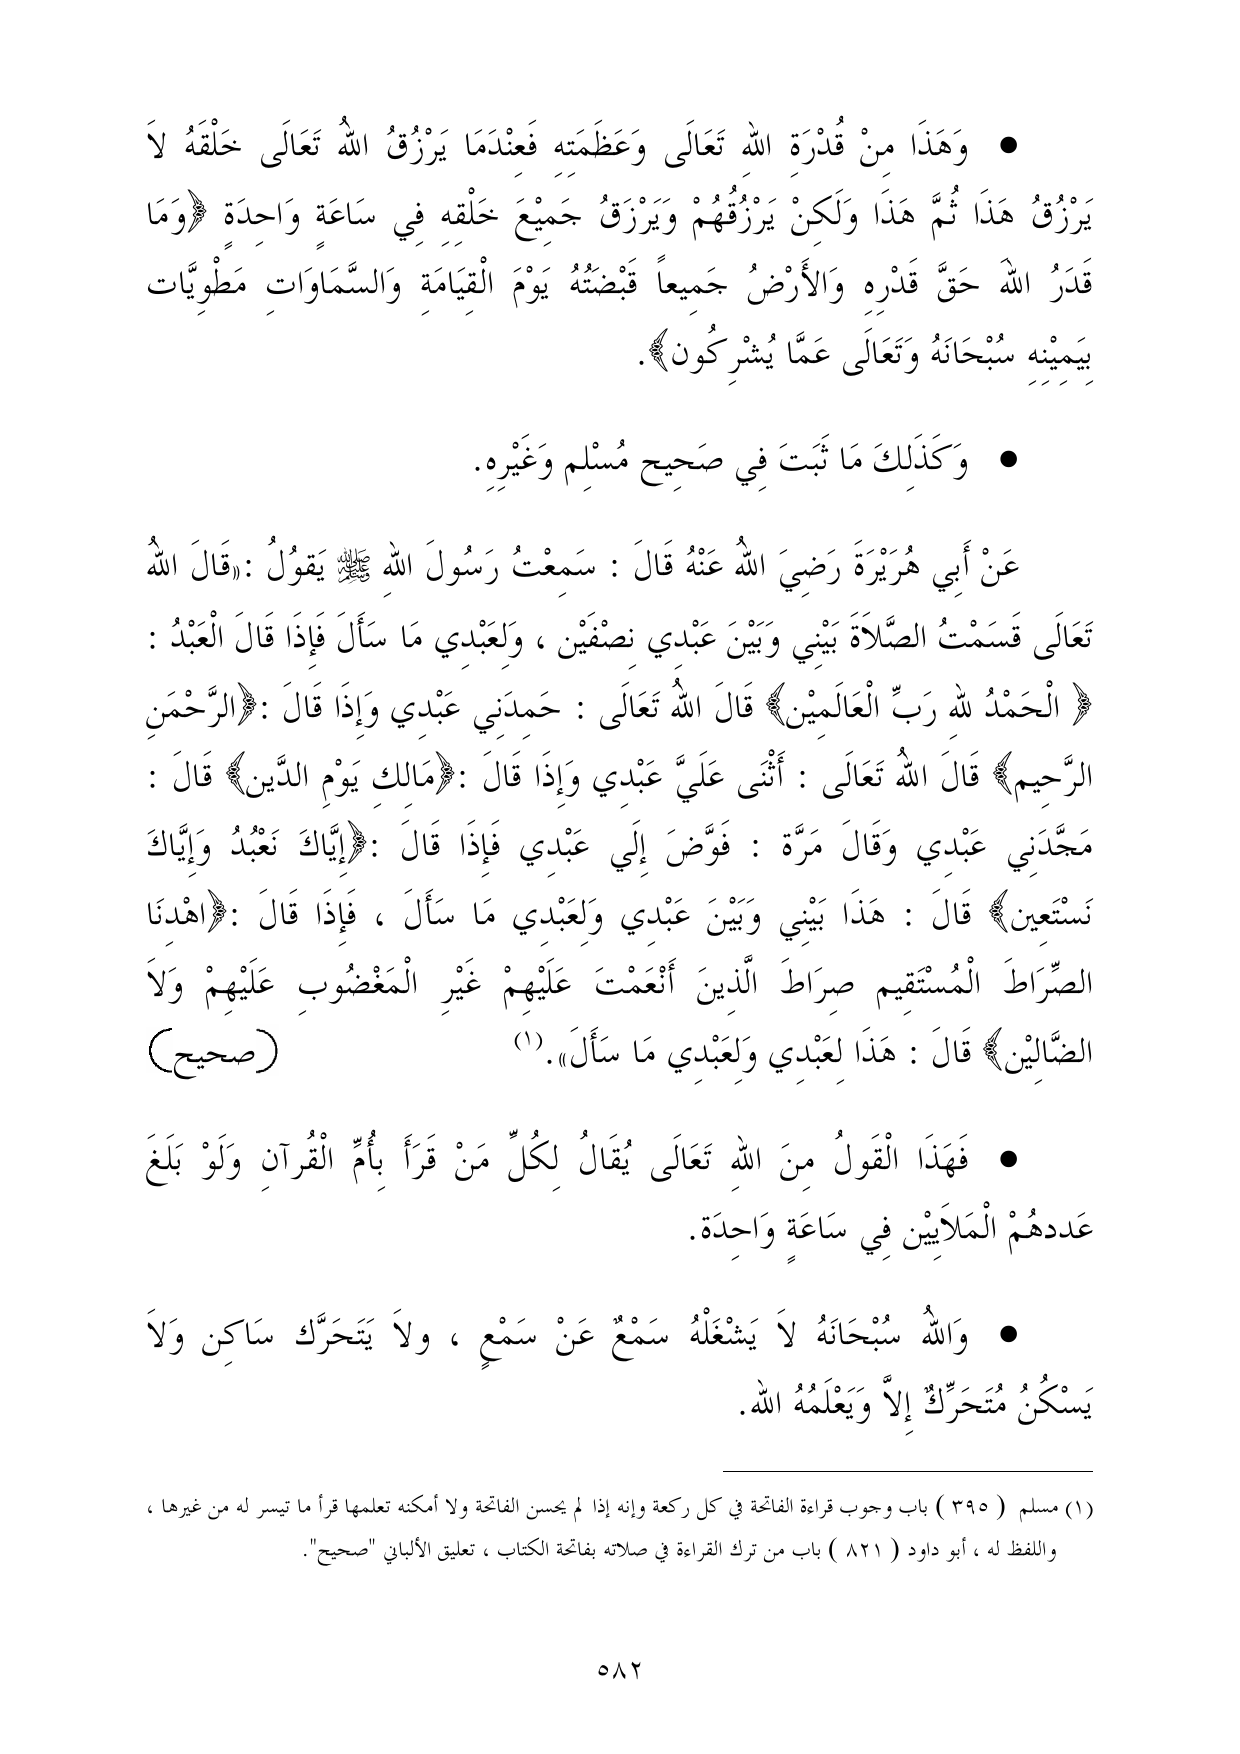 ● وَهَذَا مِنْ قُدْرَةِ اللهِ تَعَالَى وَعَظَمَتِهِ فَعِنْدَمَا يَرْزُقُ اللهُ تَعَالَى خَلْقَهُ لاَ
يَرْزُقُ هَذَا ثُمَّ هَذَا وَلَكِنْ يَرْزُقُهُمْ وَيَرْزَقُ جَمِيْعَ خَلْقِهِ فِي سَاعَةٍ وَاحِدَةٍ ﴿وَمَا
قَدَرُ اللهَ حَقَّ قَدْرِهِ وَالأَرْضُ جَمِيعاً قَبْضَتُهُ يَوْمَ الْقِيَامَةِ وَالسَّمَاوَاتِ مَطْوِيَّات
بِيَمِيْنِهِ سُبْحَانَهُ وَتَعَالَى عَمَّا يُشْرِكُون﴾.
● وَكَذَلِكَ مَا ثَبَتَ فِي صَحِيح مُسْلِم وَغَيْرِهِ.
عَنْ أَبِي هُرَيْرَةَ رَضِيَ اللهُ عَنْهُ قَالَ : سَمِعْتُ رَسُولَ اللهِ ﷺ يَقوُلُ :«قَالَ اللهُ
تَعَالَى قَسَمْتُ الصَّلاَةَ بَيْنِي وَبَيْنَ عَبْدِي نِصْفَيْن ، وَلِعَبْدِي مَا سَأَلَ فَإِذَا قَالَ الْعَبْدُ :
﴿ الْحَمْدُ للهِ رَبِّ الْعَالَمِيْن﴾ قَالَ اللهُ تَعَالَى : حَمِدَنِي عَبْدِي وَإِذَا قَالَ :﴿الرَّحْمَنِ
الرَّحِيم﴾ قَالَ اللهُ تَعَالَى : أَثْنَى عَلَيَّ عَبْدِي وَإِذَا قَالَ :﴿مَالِكِ يَوْمِ الدَّين﴾ قَالَ :
مَجَّدَنِي عَبْدِي وَقَالَ مَرَّة : فَوَّضَ إِلَي عَبْدِي فَإِذَا قَالَ :﴿إِيَّاكَ نَعْبُدُ وَإِيَّاكَ
نَسْتَعِين﴾ قَالَ : هَذَا بَيْنِي وَبَيْنَ عَبْدِي وَلِعَبْدِي مَا سَأَلَ ، فَإِذَا قَالَ :﴿اهْدِنَا
الصِّرَاطَ الْمُسْتَقِيم صِرَاطَ الَّذِينَ أَنْعَمْتَ عَلَيْهِمْ غَيْرِ الْمَغْضُوبِ عَلَيْهِمْ وَلاَ
الضَّالِيْن﴾ قَالَ : هَذَا لِعَبْدِي وَلِعَبْدِي مَا سَأَلَ».(١) (صحيح)
● فَهَذَا الْقَولُ مِنَ اللهِ تَعَالَى يُقَالُ لِكُلِّ مَنْ قَرَأَ بِأُمِّ الْقُرآنِ وَلَوْ بَلَغَ
عَددهُمْ الْمَلاَيِيْن فِي سَاعَةٍ وَاحِدَة.
● وَاللهُ سُبْحَانَهُ لاَ يَشْغَلْهُ سَمْعٌ عَنْ سَمْعٍ ، ولاَ يَتَحَرَّك سَاكِن وَلاَ
يَسْكُنُ مُتَحَرِّكٌ إِلاَّ وَيَعْلَمُهُ الله.
(١) مسلم ( ٣٩٥ ) باب وجوب قراءة الفاتحة في كل ركعة وإنه إذا لم يحسن الفاتحة ولا أمكنه تعلمها قرأ ما تيسر له من غيرها ،
واللفظ له ، أبو داود ( ٨٢١ ) باب من ترك القراءة في صلاته بفاتحة الكتاب ، تعليق الألباني "صحيح".
٥٨٢